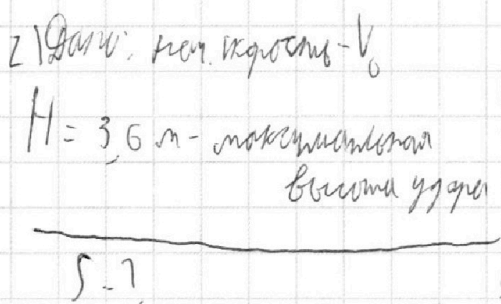 2) Дано: нач. скорость - V₀
H = 3,6 м - максимальная
высота удара
S - ?